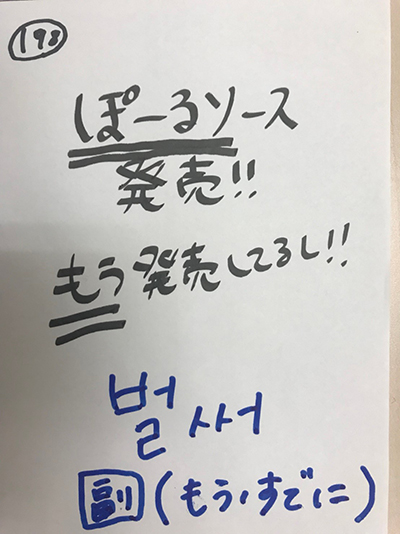 198
ぽーるソース
発売!!
もう発売してるし!!
벌써
副(もう・すでに)